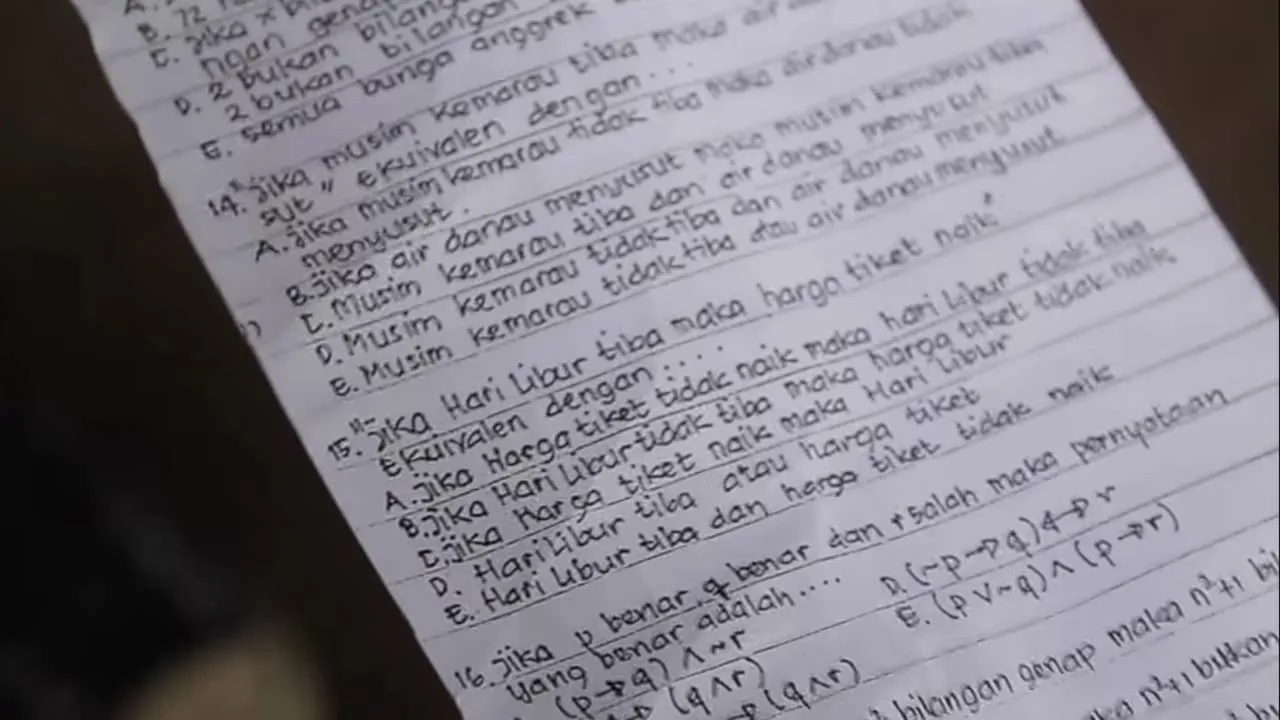 B. 72
C. jika x
ngan gena
D. 2 bukan bilang
2 bukan bilangan
E. semua bunga anggrek
14. "jika musim kemarau tiba maka air
sut" Ekuivalen dengan....
A. jika musim kemarau tidak tiba maka air danau tidak
menyusut.
B. jika air danau menyusut maka musim kemarau tiba
C. Musim kemarau tiba dan air danau menyusut
D. Musim kemarau tidak tiba dan air danau menyusut
E. Musim kemarau tidak tiba atau air danau menyusut
15. "jika Hari Libur tiba maka harga tiket naik"
Ekuivalen dengan....
A. jika Harga tiket tidak naik maka hari libur tidak tiba
B. jika Hari Libur tidak tiba maka harga tiket tidak naik
C. jika Harga tiket naik maka Hari Libur
D. Hari Libur tiba atau harga tiket
E. Hari Libur tiba dan harga tiket tidak naik
16. jika p benar, q benar dan r salah maka pernyataan
yang benar adalah....
(p→q) ∧ ~r
(q∧r)
(q∧r)
D. (~p→q) ↔ r
E. (p∨~q) ∧ (p→r)
bilangan genap maka n²+1 bil
n²+1 bukan